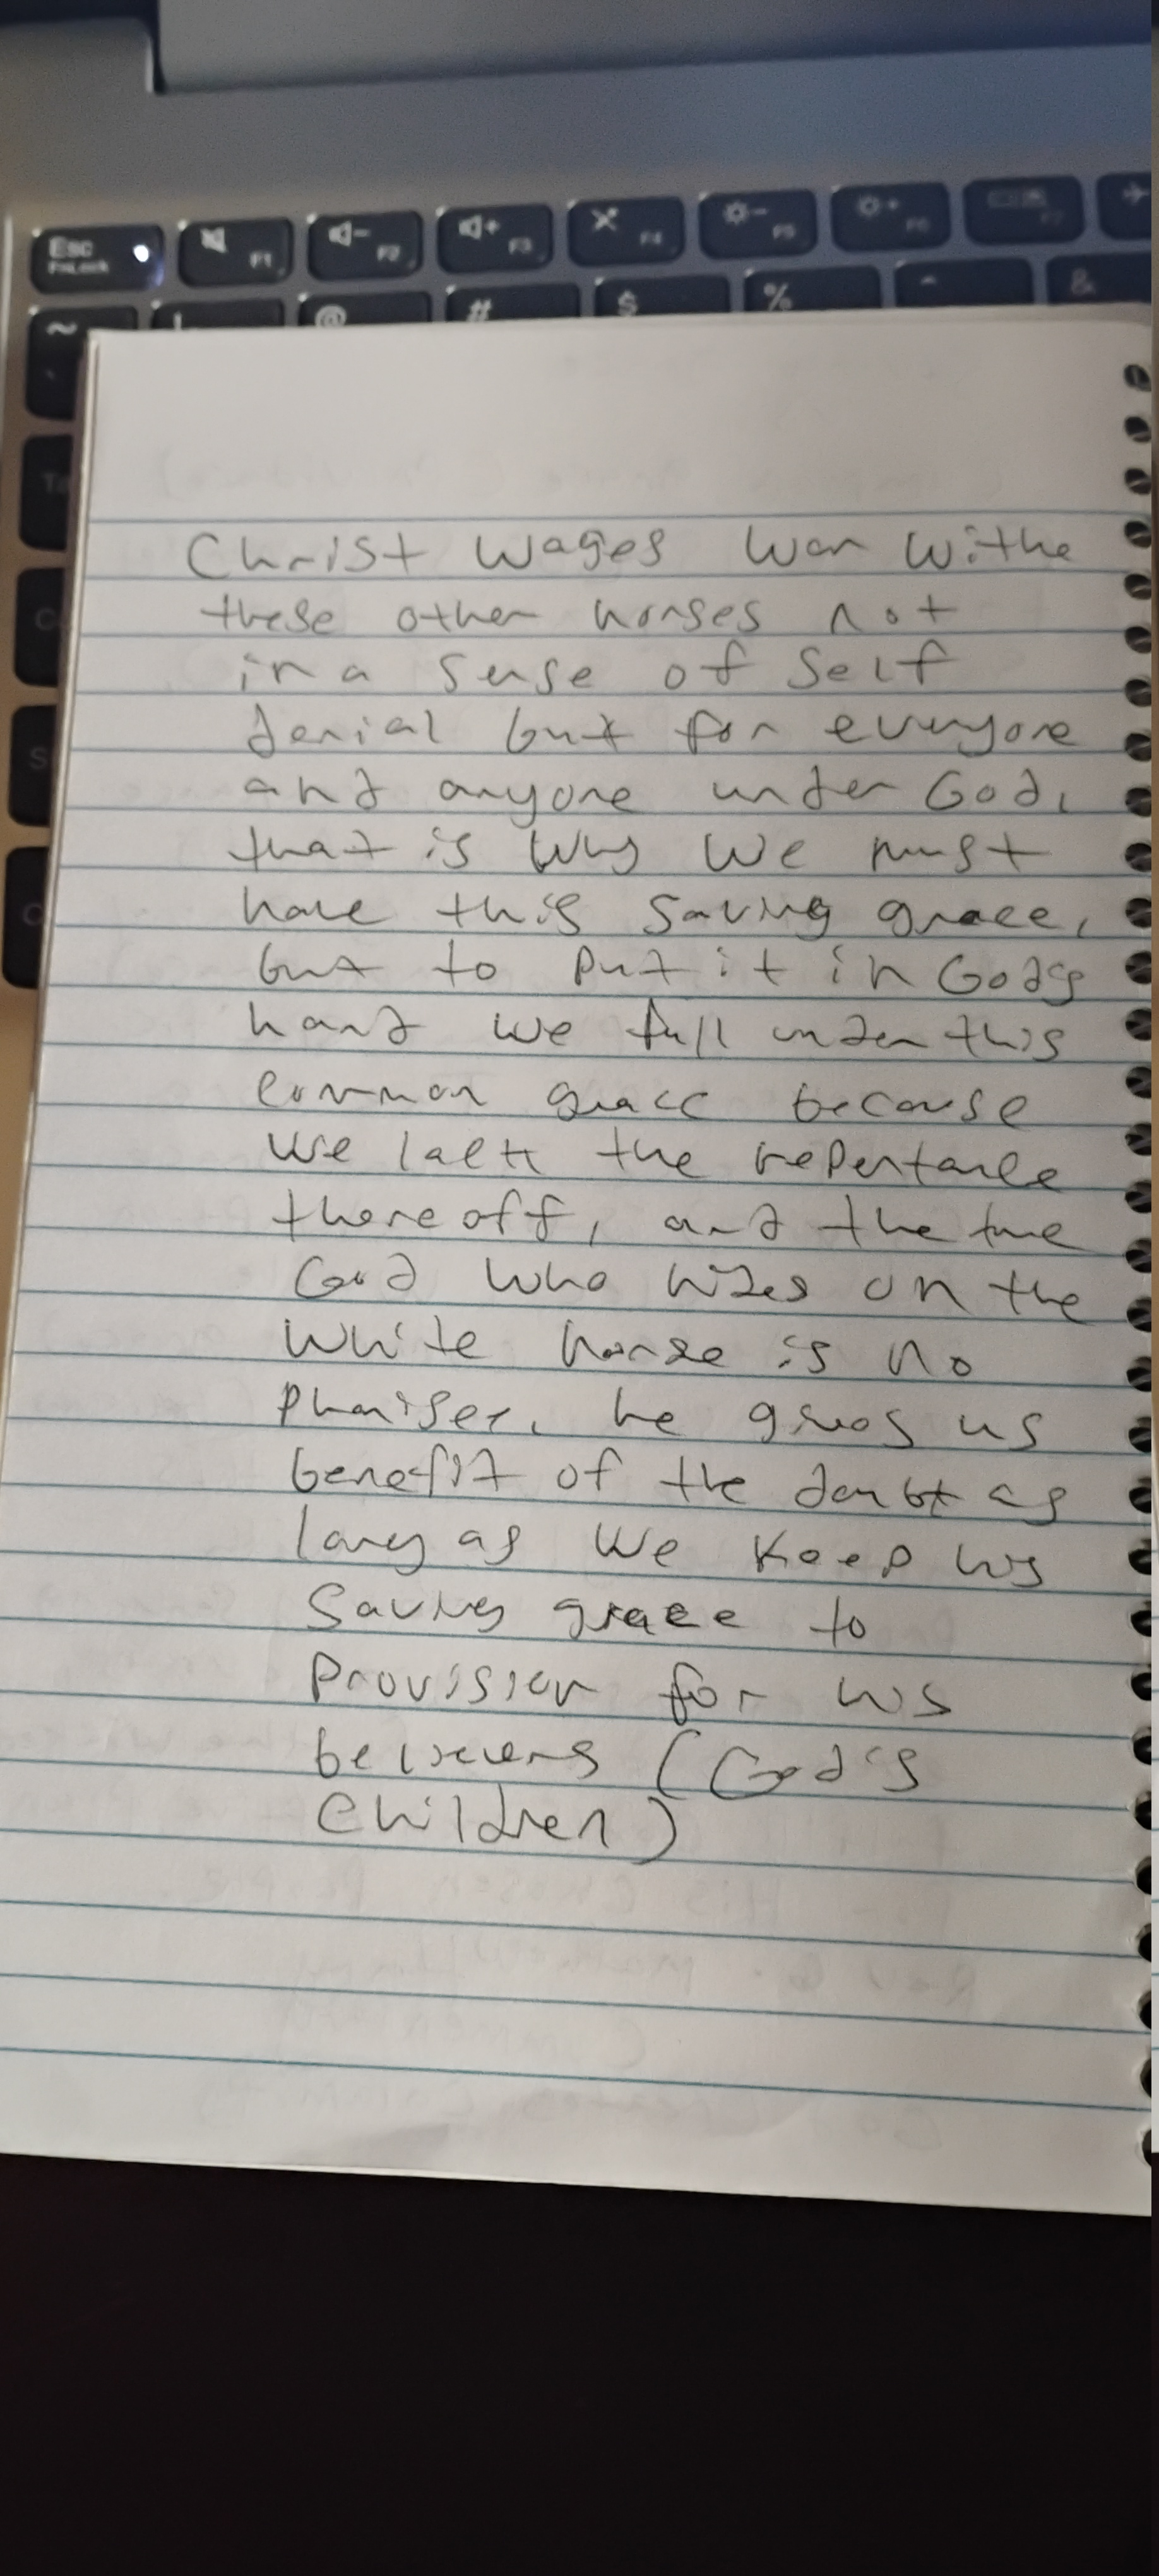 Esc
FnLock
F1
F2
F3
F4
F5
F6
F7
~
!
@
#
$
%
^
&
Christ wages war withe
these other horses not
in a sense of self
denial but for everyone
and anyone under God,
that is why we must
have this saving grace,
but to put it in God's
hand we fall under this
common grace because
we lack the repentance
thereoff, and the true
God who rides on the
white horse is no
he gives us
benefit of the doubt as
long as we keep his
saving grace to
provision for his
believers (God's
children)